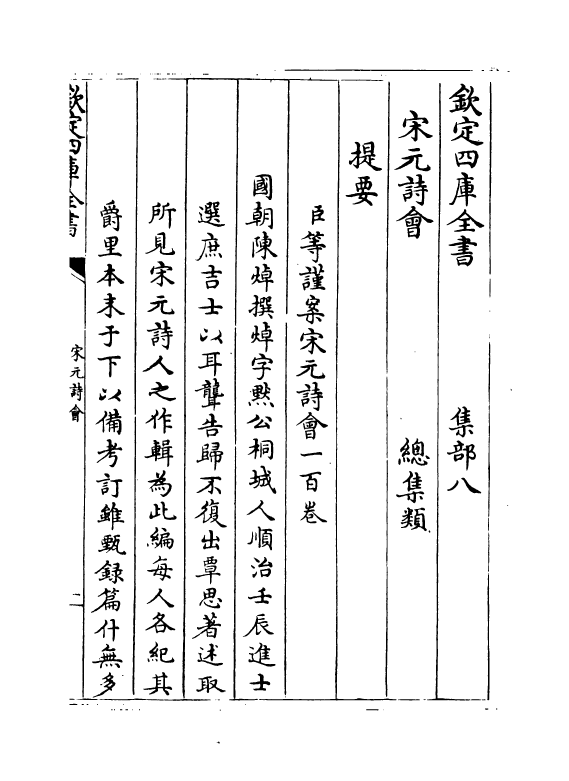 欽定四庫全書　集部八
宋元詩會　總集類
提要
臣等謹案宋元詩會一百卷
國朝陳焯撰焯字默公桐城人順治壬辰進士
選庶吉士以耳聾告歸不復出覃思著述取
所見宋元詩人之作輯為此編每人各紀其
爵里本末于下以備考訂雖甄録篇什無多
欽定四庫全書
宋元詩會
二